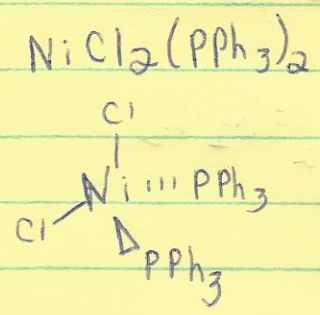 NiCl2(PPh3)2
Cl
Ni PPh3
Cl
PPh3